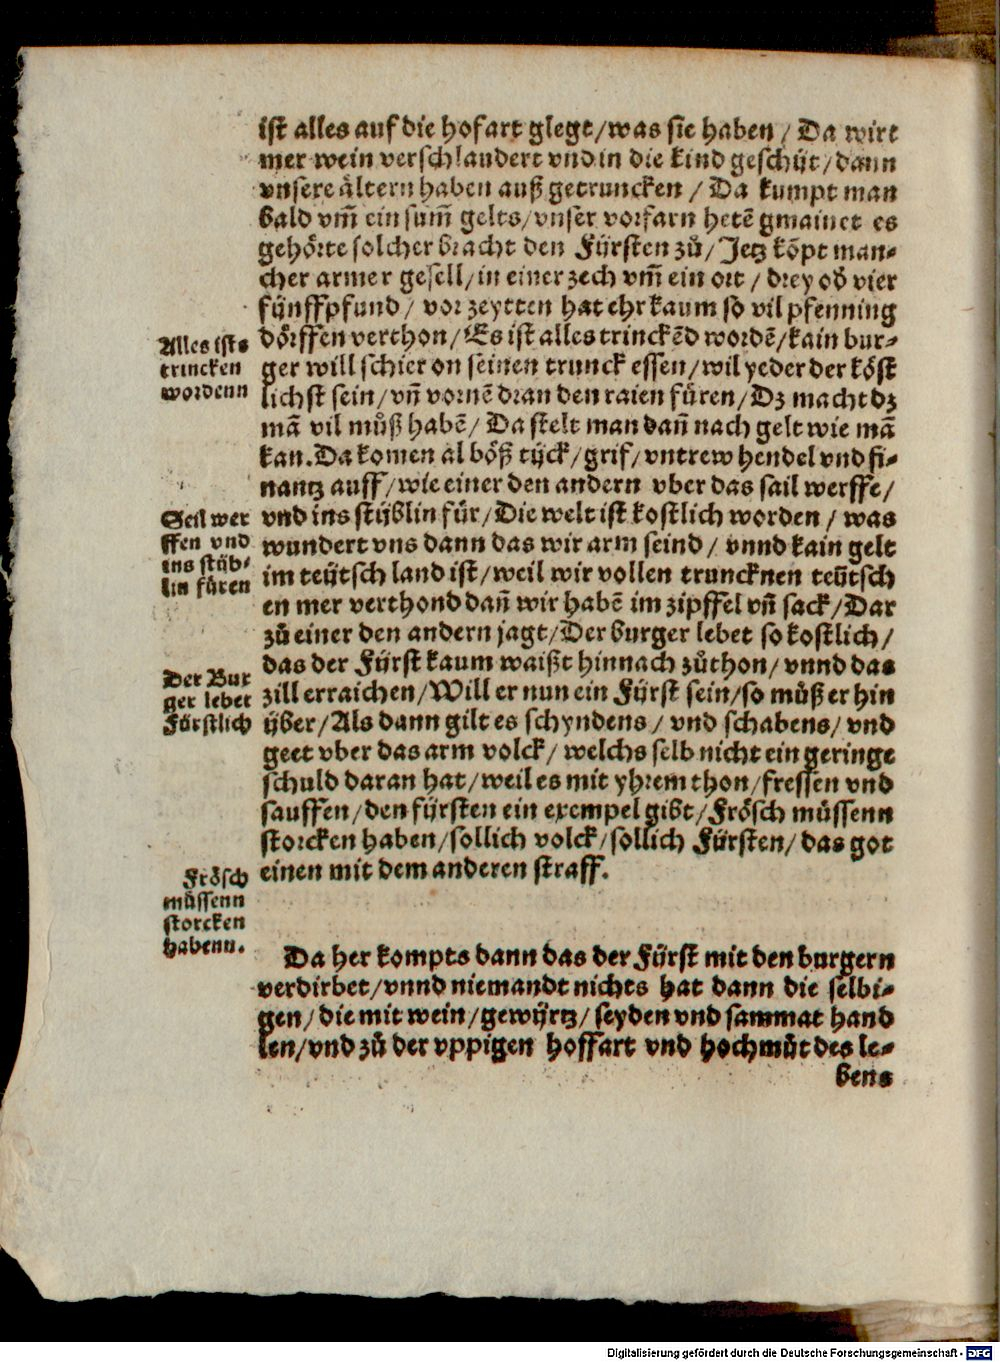 ist alles auf die hofart glegt/was sie haben / Da wirt
mer wein verschlaudert vnd in die kind geschüt/dann
vnsere ältern haben auß getruncken / Da kumpt man
bald vm̃ ein sum̃ gelts/vnser vorfarn hetẽ gmainet es
gehörte solcher bracht den Fürsten zů/Jetz kõpt man-
cher armer gesell/in einer zech vm̃ ein ort / drey ob vier
fünffpfund / vor zeytten hat ehr kaum so vil pfenning
dörffen verthon/Es ist alles trinckẽd wordẽ/kain bur-
ger will schier on seinen trunck essen/wil yeder der köst
lichst sein/vñ vornẽ dran den raien füren/Dz macht dz
mã vil můß habẽ/ Da stelt man dañ nach gelt wie mã
kan.Da komen al böß tück/grif/vntrew hendel vnd fi-
nantz auff/wie einer den andern vber das sail werffe/
vnd ins stüblin für/Die welt ist kostlich worden / was
wundert vns dann das wir arm seind/ vnnd kain gelt
im teütsch land ist/weil wir vollen truncknen teütsch
en mer verthond dañ wir habẽ im zipffel vñ sack/Dar
zů einer den andern jagt/Der burger lebet so kostlich/
das der Fürst kaum waißt hinnach zůthon/vnnd das
zill erraichen/Will er nun ein Fürst sein/so můß er hin
über/Als dann gilt es schyndens/ vnd schabens/vnd
geet vber das arm volck/ welchs selb nicht ein geringe
schuld daran hat/weil es mit yhrem thon/fressen vnd
sauffen/den fürsten ein exempel gibt/Frösch müssenn
storcken haben/sollich volck/sollich Fürsten/das got
einen mit dem anderen straff.
Alles ists
trincken
wordenn
Seil wer
ffen vnd
ins stüb-
lin füren
Der Bur
ger lebet
Fürstlich
Frösch
müssenn
storcken
habenn.
Da her kompts dann das der Fürst mit den burgern
verdirbet/vnnd niemandt nichts hat dann die selbi-
gen/die mit wein/gewürtz/seyden vnd sammat hand
len/vnd zů der vppigen hoffart vnd hochmůt des le-
bens
Digitalisierung gefördert durch die Deutsche Forschungsgemeinschaft - DFG